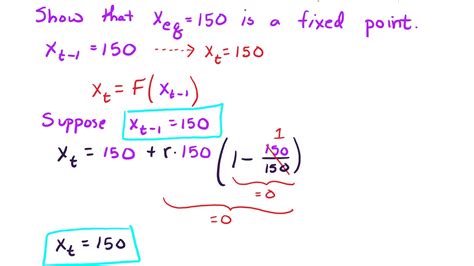 Show that x_eq = 150 is a fixed point.
x_t-1 = 150 ----> x_t = 150
x_t = F(x_t-1)
Suppose x_t-1 = 150
1
x_t = 150 + r · 150 (1 - 150/150)
= 0
= 0
x_t = 150